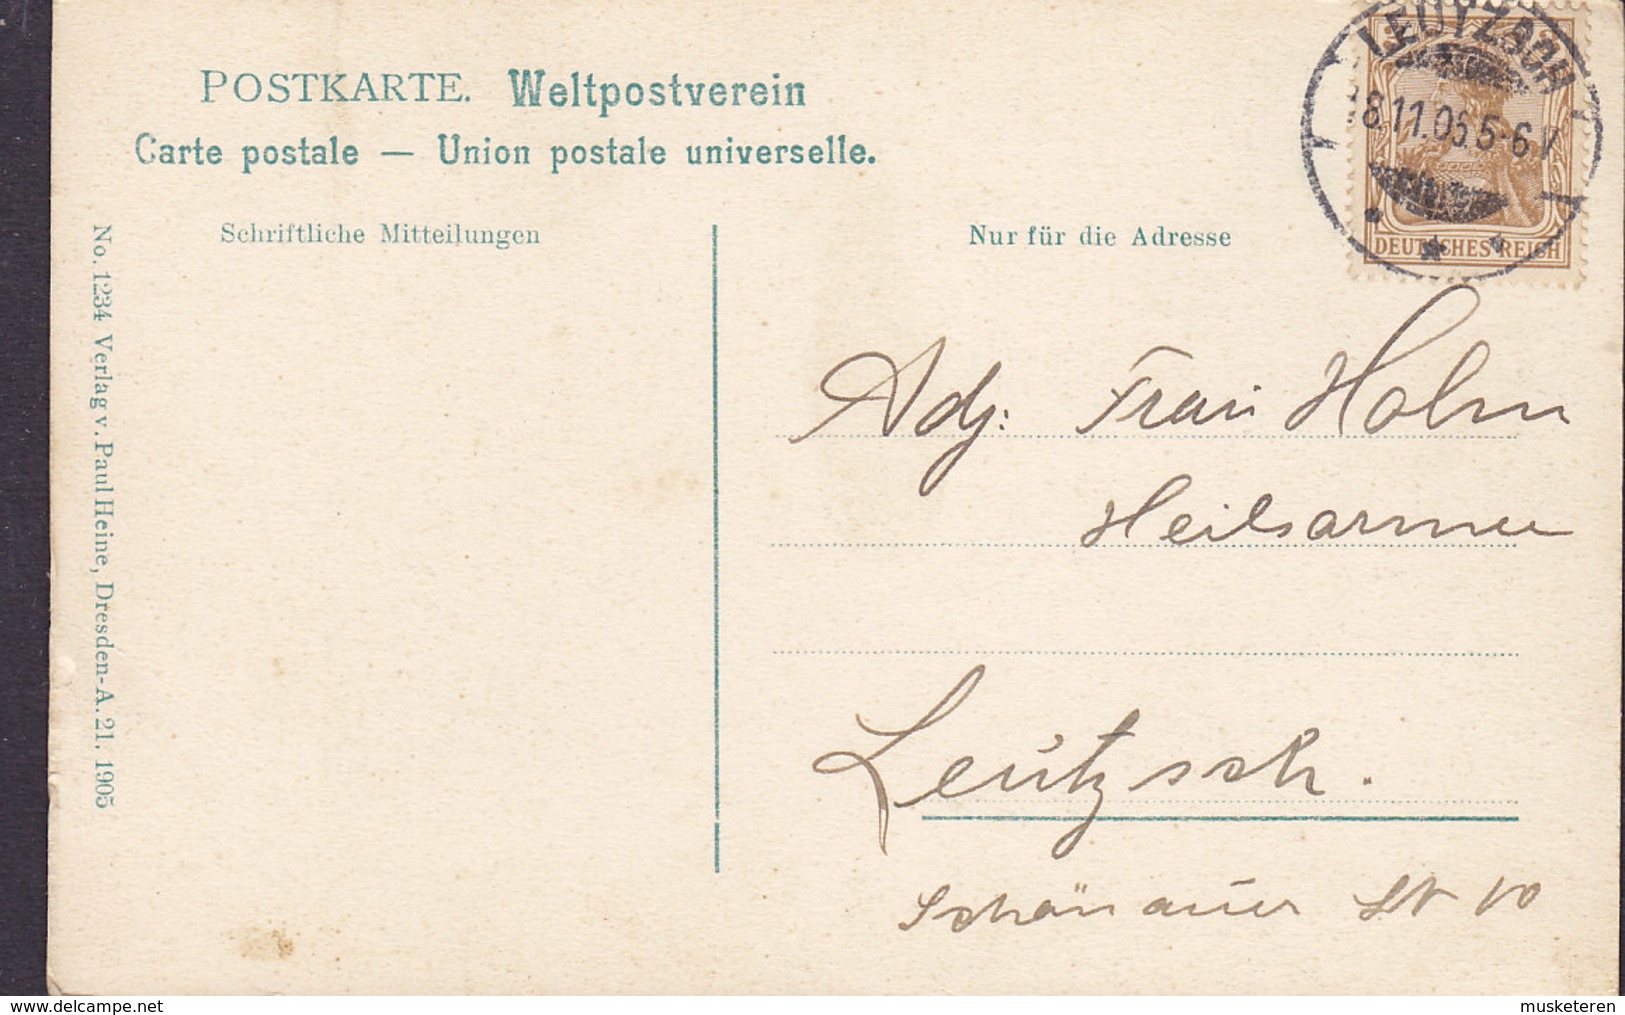 POSTKARTE. Weltpostverein
Carte postale — Union postale universelle.
Schriftliche Mitteilungen
Nur für die Adresse
LEUTZSCH
8.11.05.5-6V
DEUTSCHES REICH
No. 1234 Verlag v. Paul Heine, Dresden-A. 21. 1905
Adj: Frau Holm
Heilsarmee
Leutzsch.
Schönauer St 10
www.delcampe.net
musketeren